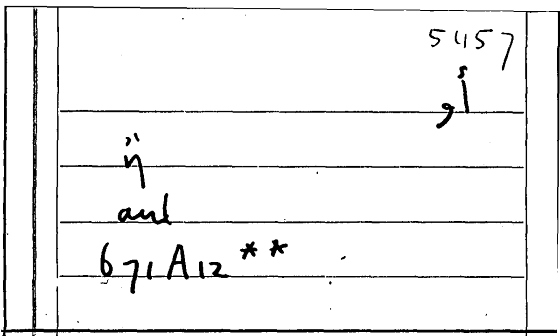 5457
أو
ἤ
aut
671A12**